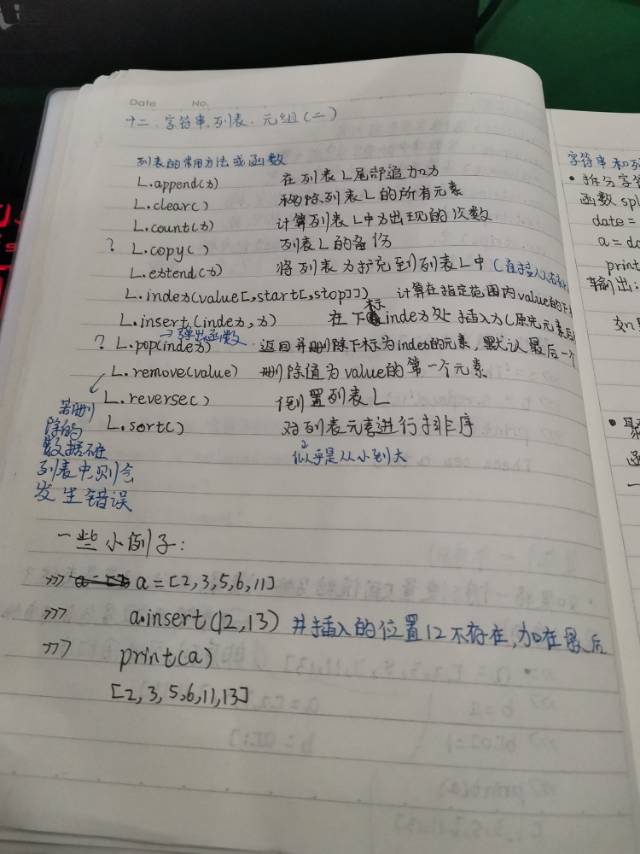 Date No.
十二、字符串、列表、元组(二)
列表的常用方法或函数
L.append(x) 在列表L尾部追加x
L.clear() 移除列表L的所有元素
L.count(x) 计算列表L中x出现的次数
? L.copy() 列表L的备份
L.extend(x) 将列表x扩充到列表L中
L.index(value[,start[,stop]]) 计算在指定范围内value的下标
L.insert(index,x) 在下标index处插入x(原先元素后
→弹出函数
? L.pop(index) 返回并删除下标为index的元素,默认最后一个
L.remove(value) 删除值为value的第一个元素
L.reverse() 倒置列表L
L.sort() 对列表元素进行排序
似乎是从小到大
若删
除的
数据不在
列表中,则会
发生错误
一些小例子:
>>> a=[2,3,5,6,11]
>>> a.insert(12,13) 并插入的位置12不存在,加在最后
>>> print(a)
[2,3,5,6,11,13]
字符串和列
• 拆分字符
函数spl
date=
a=da
print
输出:
如